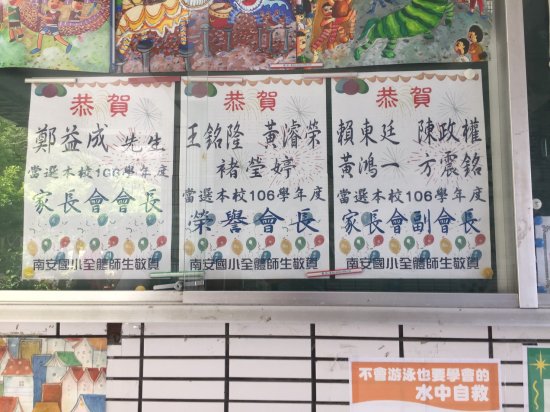 恭賀
鄭益成 先生
當選本校106學年度
家長會會長
南安國小全體師生敬賀
恭賀
王銘隆 黃濬榮
褚瑩婷
當選本校106學年度
榮譽會長
南安國小全體師生敬賀
恭賀
賴東廷 陳政權
黃鴻一 方震銘
當選本校106學年度
家長會副會長
南安國小全體師生敬賀
不會游泳也要學會的
水中自救